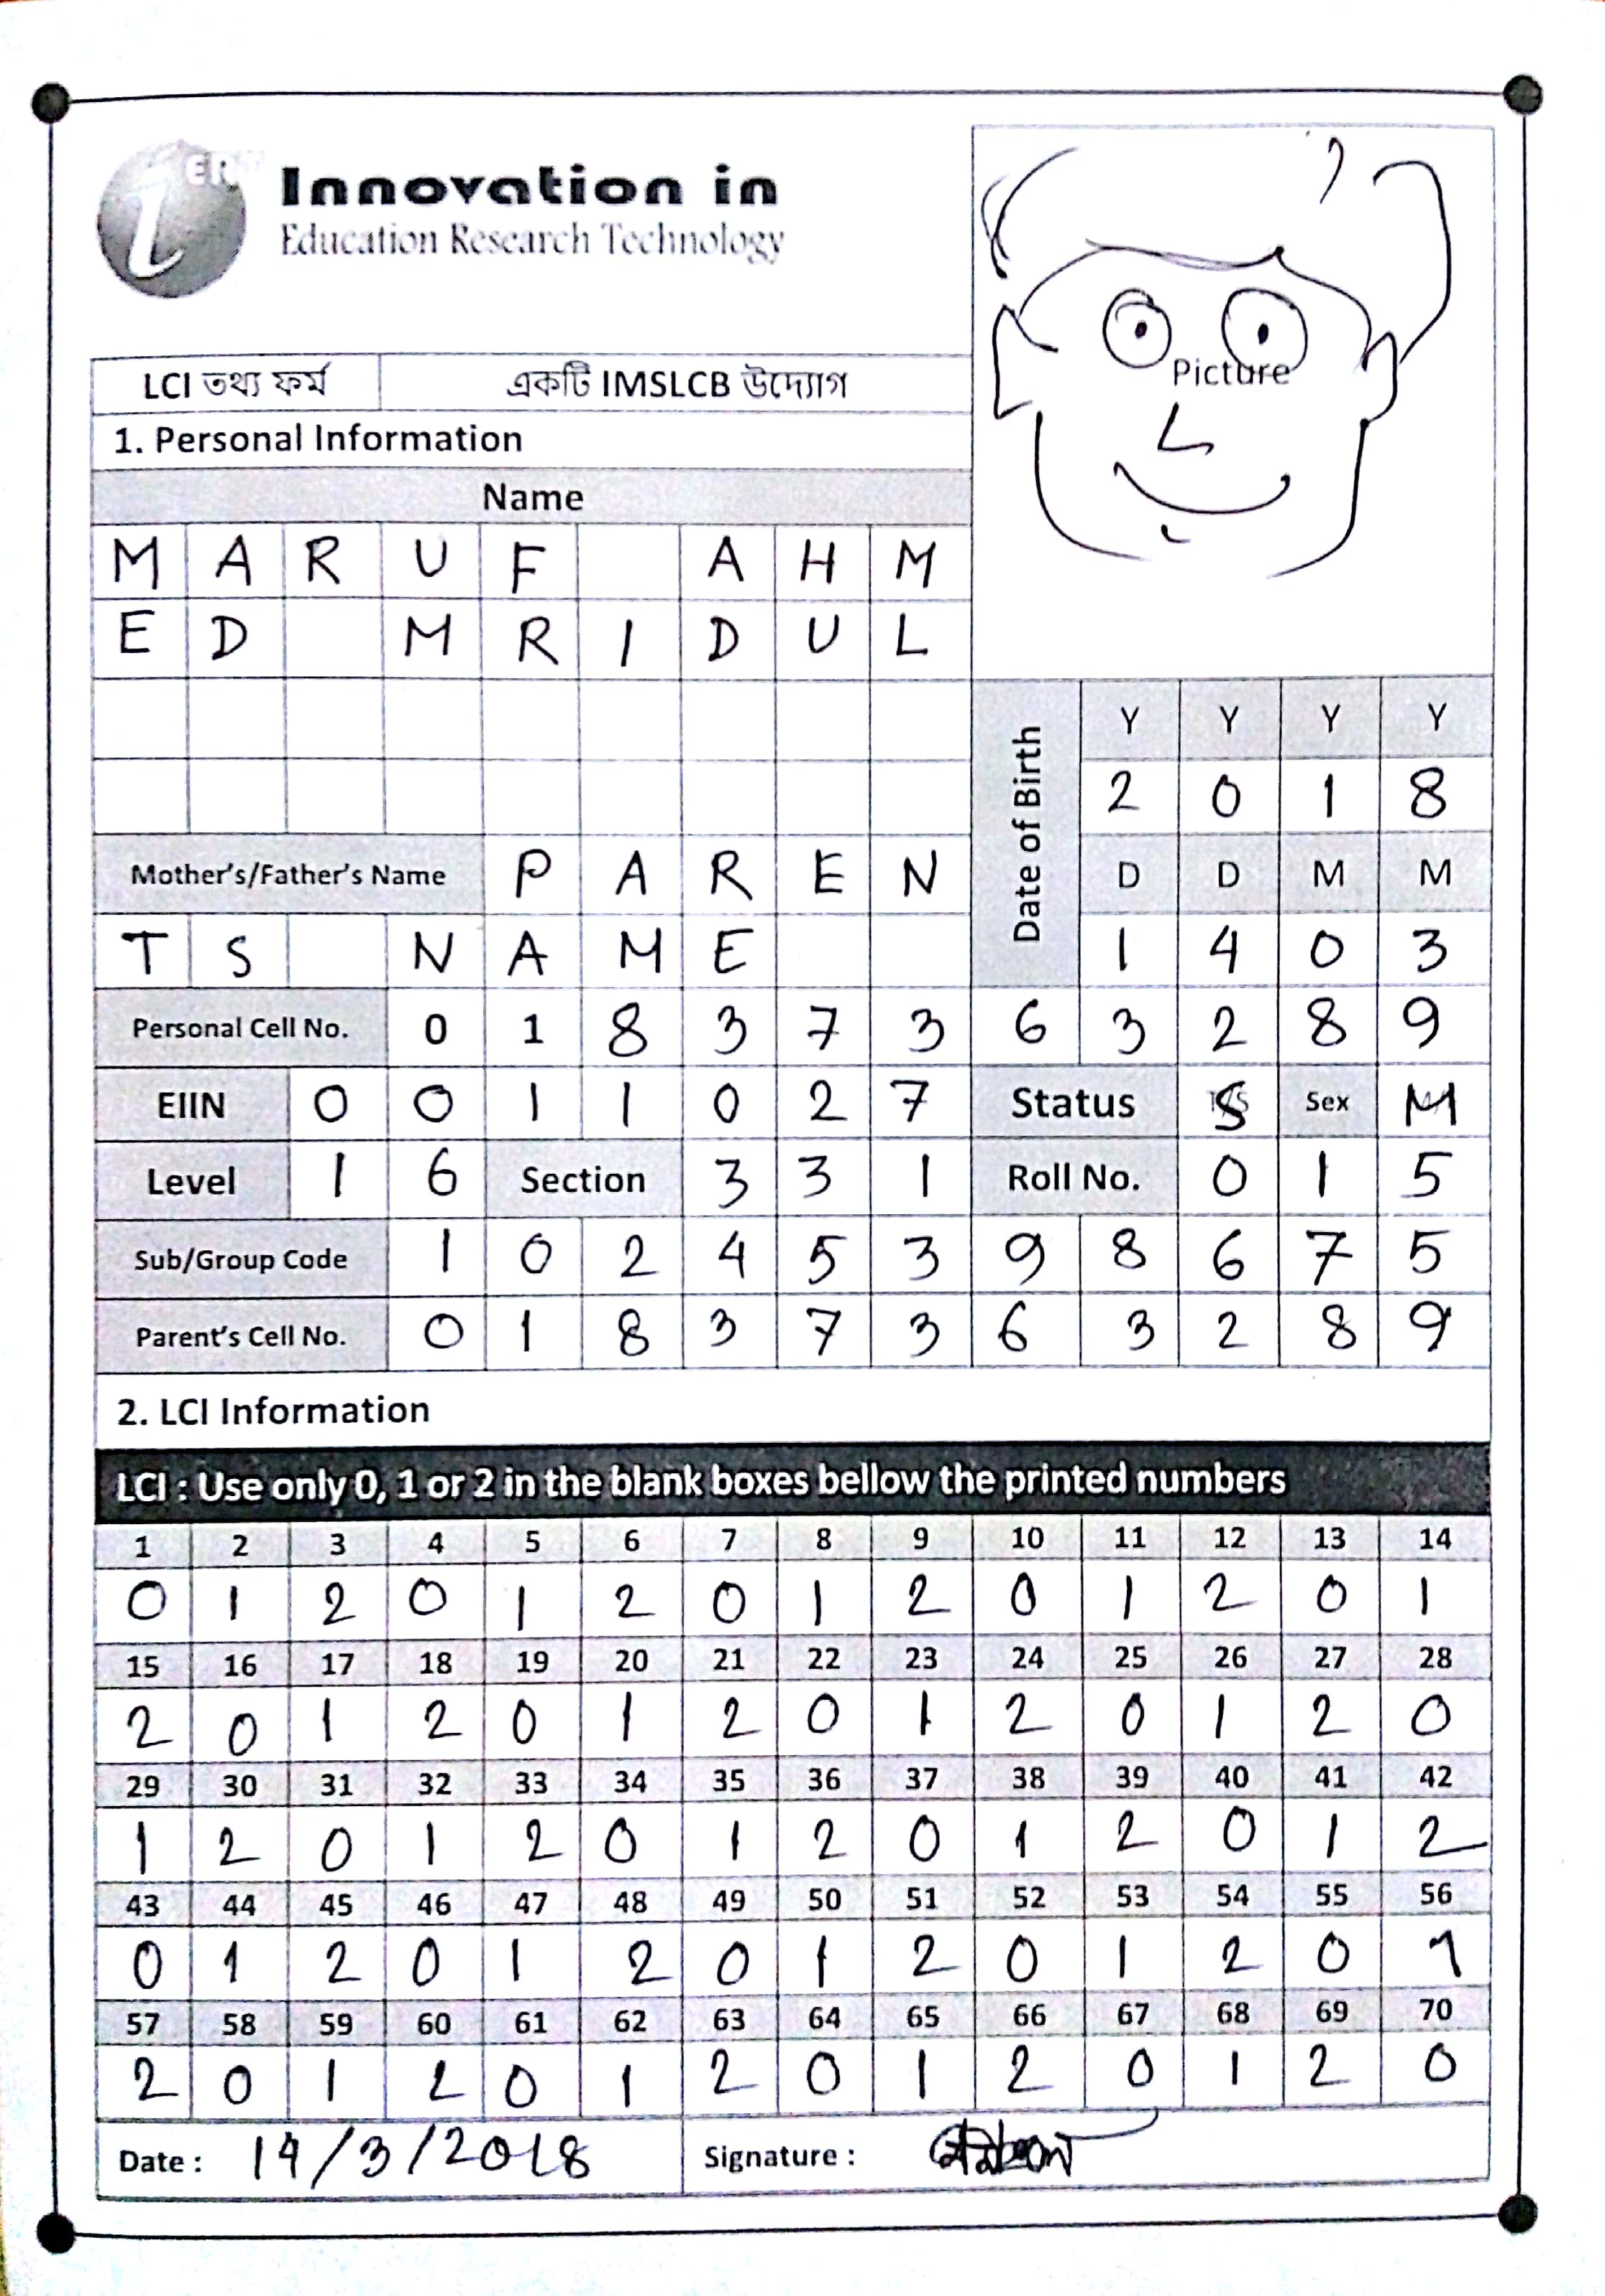 ERT
Innovation in
Education Research Technology
Picture
LCI তথ্য ফর্ম একটি IMSLCB উদ্যোগ
1. Personal Information
Name
M A R U F A H M
E D M R I D U L
Date of Birth
Y Y Y Y
2 0 1 8
D D M M
1 4 0 3
Mother's/Father's Name P A R E N
T S N A M E
Personal Cell No. 0 1 8 3 7 3 6 3 2 8 9
EIIN 0 0 1 1 0 2 7 Status S Sex M
Level 1 6 Section 3 3 1 Roll No. 0 1 5
Sub/Group Code 1 0 2 4 5 3 9 8 6 7 5
Parent's Cell No. 0 1 8 3 7 3 6 3 2 8 9
2. LCI Information
LCI : Use only 0, 1 or 2 in the blank boxes bellow the printed numbers
1 2 3 4 5 6 7 8 9 10 11 12 13 14
0 1 2 0 1 2 0 1 2 0 1 2 0 1
15 16 17 18 19 20 21 22 23 24 25 26 27 28
2 0 1 2 0 1 2 0 1 2 0 1 2 0
29 30 31 32 33 34 35 36 37 38 39 40 41 42
1 2 0 1 2 0 1 2 0 1 2 0 1 2
43 44 45 46 47 48 49 50 51 52 53 54 55 56
0 1 2 0 1 2 0 1 2 0 1 2 0 1
57 58 59 60 61 62 63 64 65 66 67 68 69 70
2 0 1 2 0 1 2 0 1 2 0 1 2 0
Date : 14/3/2018 Signature :